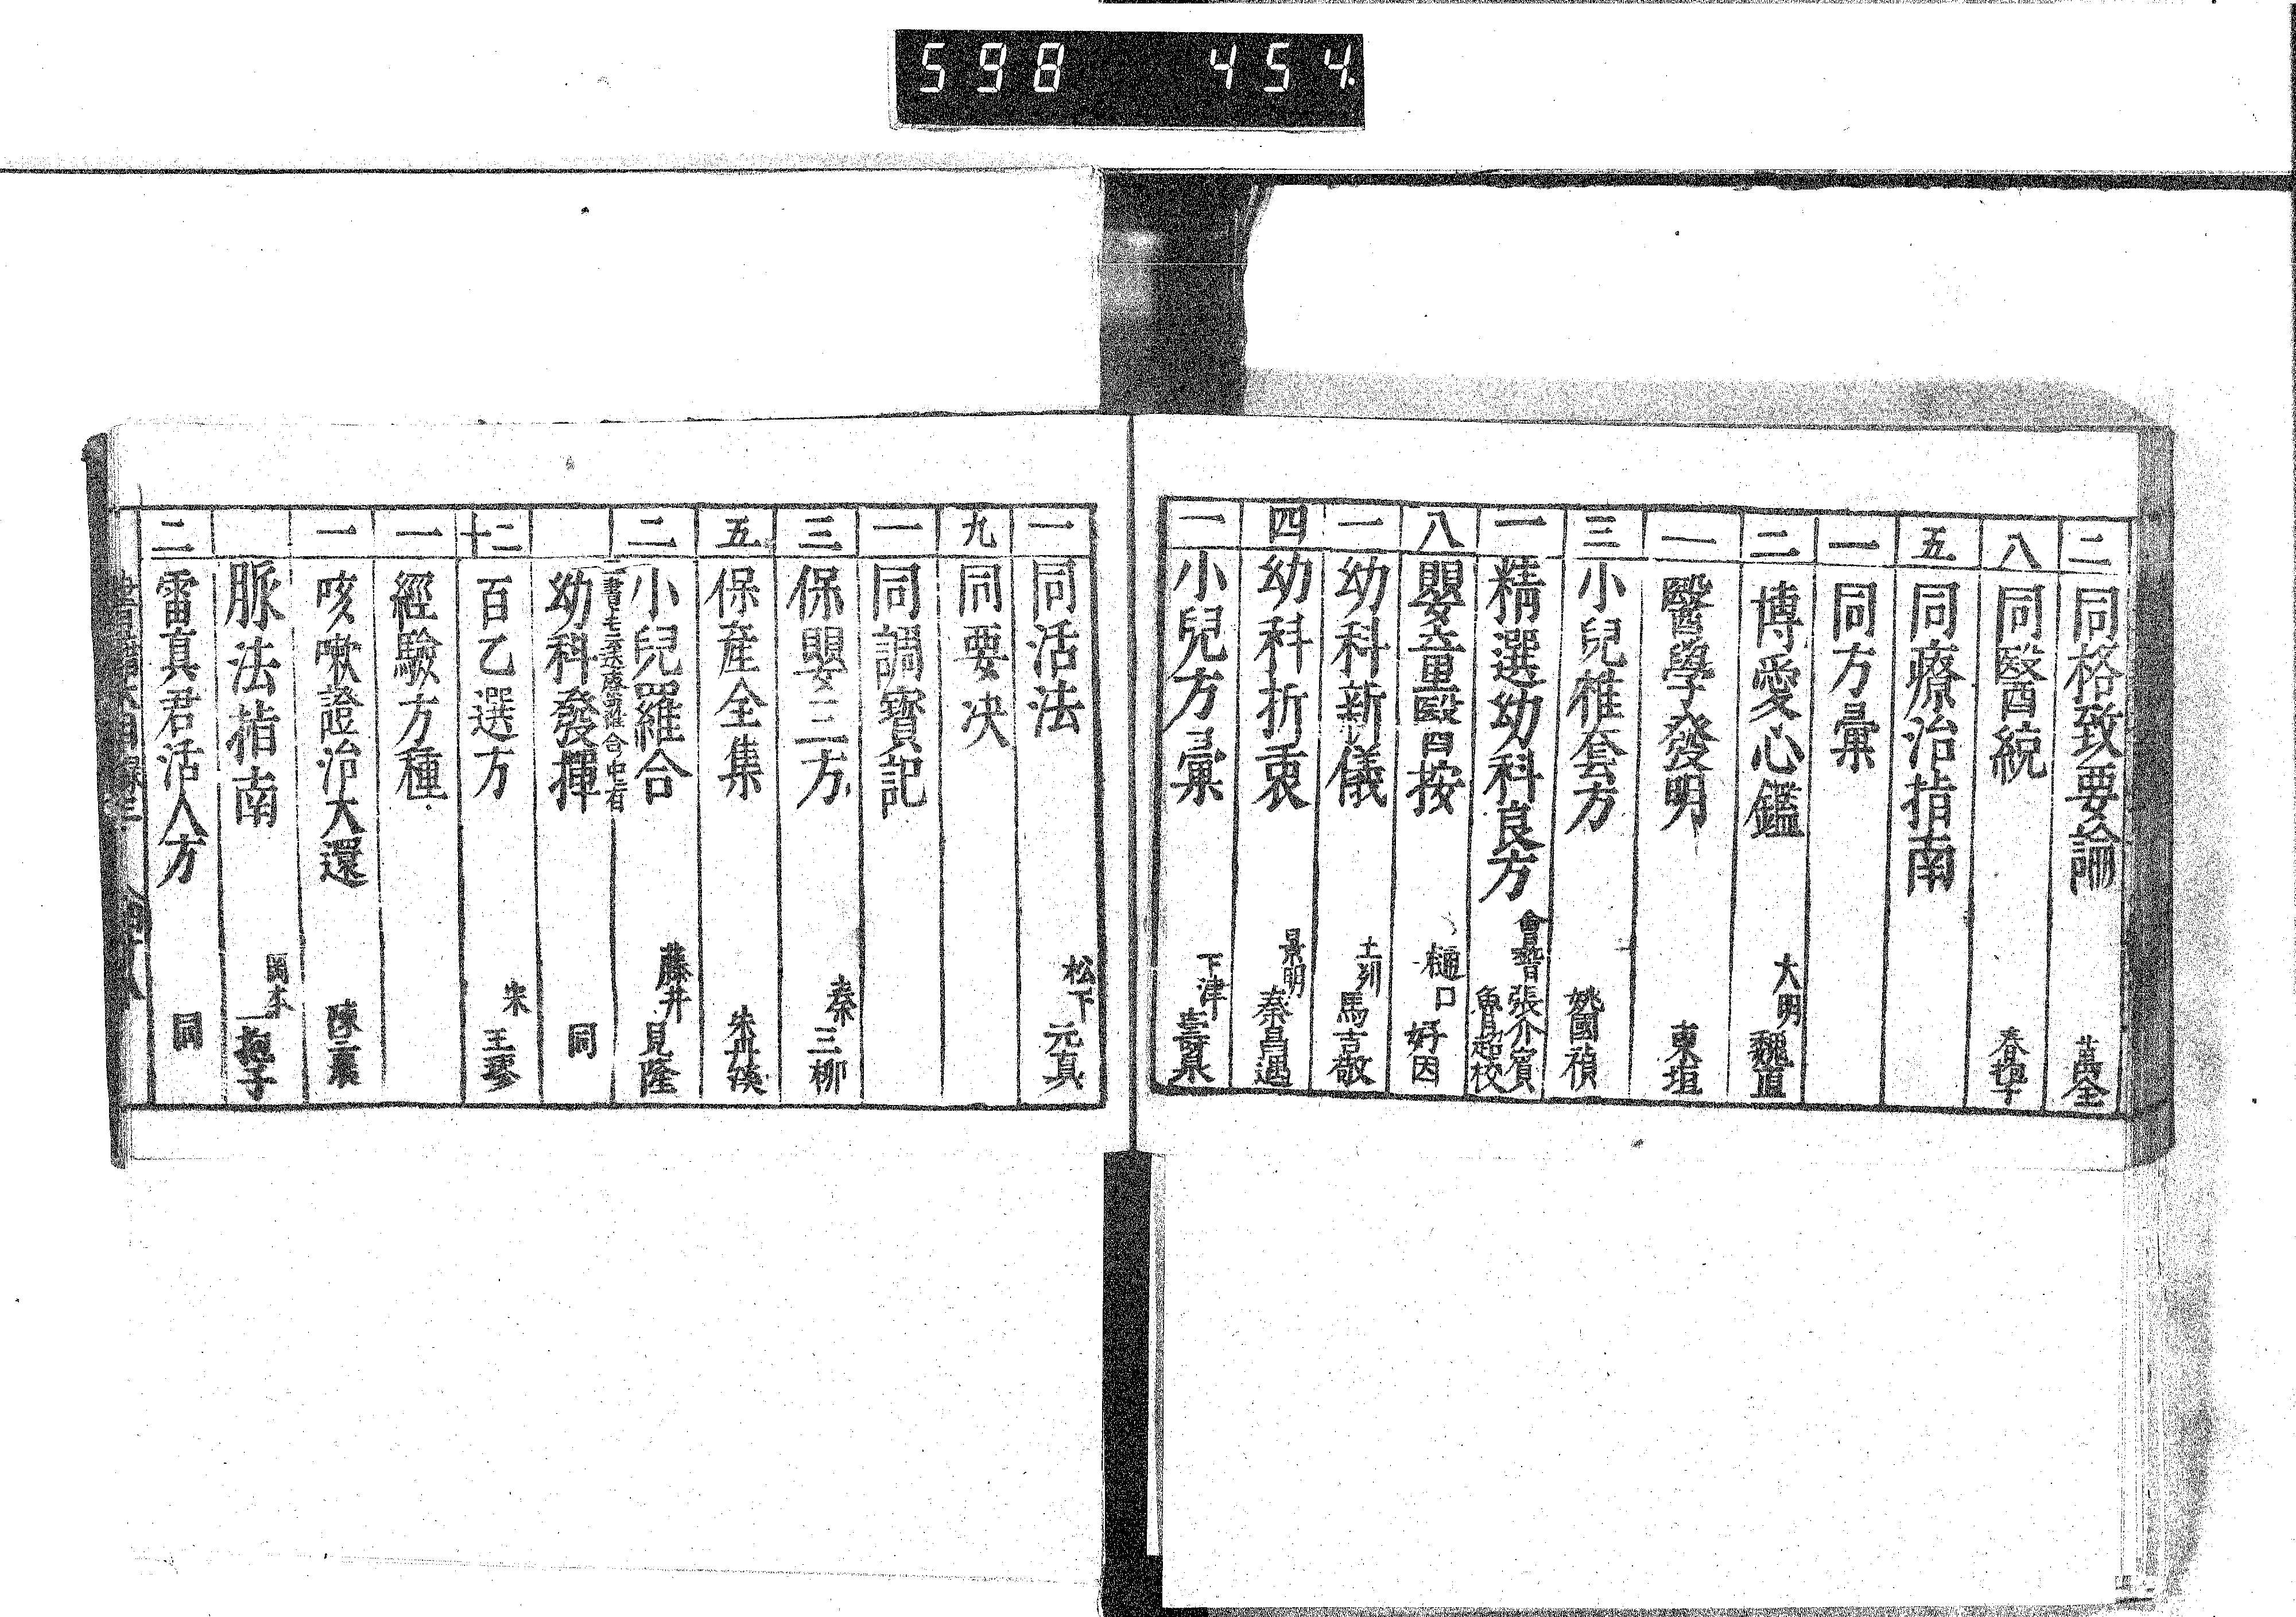 598 454
二 同格致要論 萬全
八 同醫統 春抱子
五 同療治指南
一 同方彙
二 博愛心鑑 大明 魏直
一 醫學發明 東垣
三 小兒椎套方 姚國禎
一 精選幼科良方 會稽 張介賓 魯超校
八 嬰童醫按 樋口 好因
一 幼科新儀 土州 馬吉敬
四 幼科折衷 景明 秦昌遇
一 小兒方彙 下津 壽泉
一 同活法 松下 元真
九 同要决
一 同調寶記
三 保嬰三方 秦 三柳
五 保産全集 朱丹溪
二 小兒羅合 藤井 見隆
幼科發揮 同
十二 百乙選方 宋 王璆
一 經驗方種
一 咳嗽證治大還 陳三農
脈法指南 岡本 一抱子
二 雷真君活人方 同